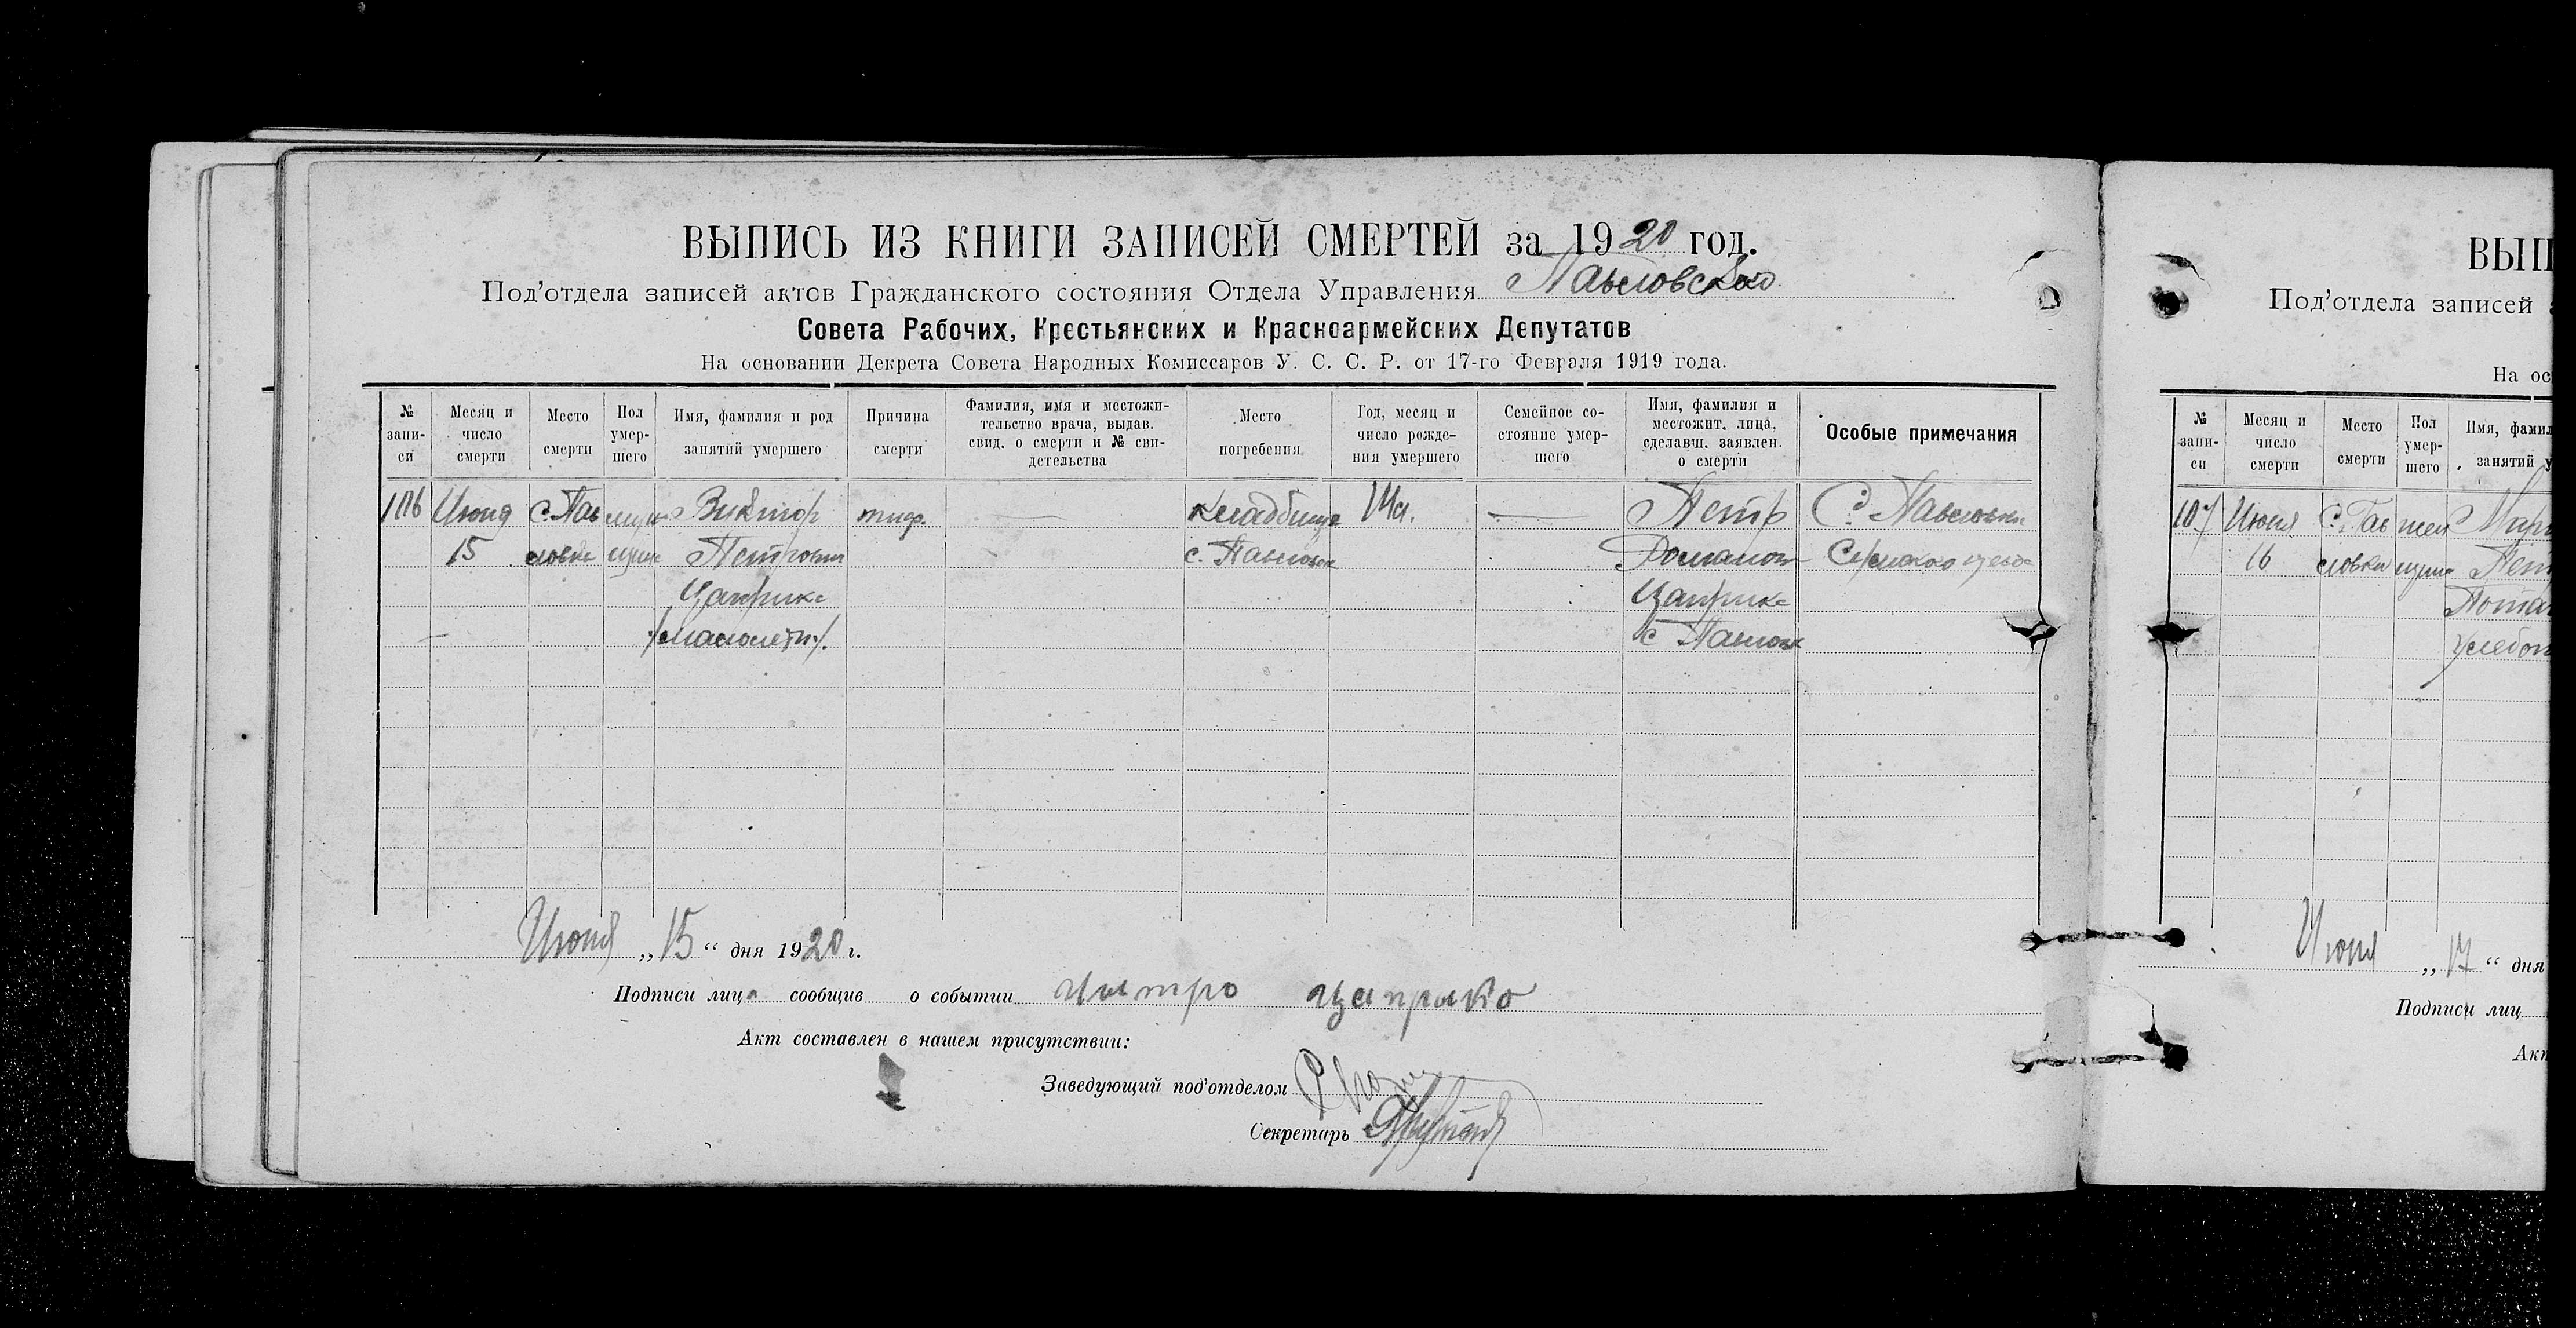 ВЫПИСЬ ИЗ КНИГИ ЗАПИСЕЙ СМЕРТЕЙ за 1920 год.
Под'отдела записей актов Гражданского состояния Отдела Управления Павловского
Совета Рабочих, Крестьянских и Красноармейских Депутатов
На основании Декрета Совета Народных Комиссаров У. С. С. Р. от 17-го Февраля 1919 года.
№ запи-
си
Месяц и
число
смерти
Место
смерти
Пол
умер-
шего
Имя, фамилия и род
занятий умершего
Причина
смерти
Фамилия, имя и местожи-
тельство врача, выдав.
свид. о смерти и № сви-
детельства
Место
погребения
Год, месяц и
число рожде-
ния умершего
Семейное со-
стояние умер-
шего
Имя, фамилия и
местожит. лица,
сделавш. заявлен.
о смерти
Особые примечания
106 Июня С. Пав Виктор тиф. Кладбище Петр С. Павловки
15 ловке Петрович с. Павловк Романов
Цаприко Цаприко
/малолетн/. с Павловк
Июня „15“ дня 1920 г.
Подписи лица сообщив о событии Цаприко
Акт составлен в нашем присутствии:
Заведующий под'отделом
Секретарь
ВЫП
Под'отдела записей
На ос
№
запи-
си
Месяц и
число
смерти
Место
смерти
Пол
умер-
шего
Имя, фамил
занятий у
107 Июня С. Пав
16 ловки
Июня „17“ дня
Подписи лиц
Ак